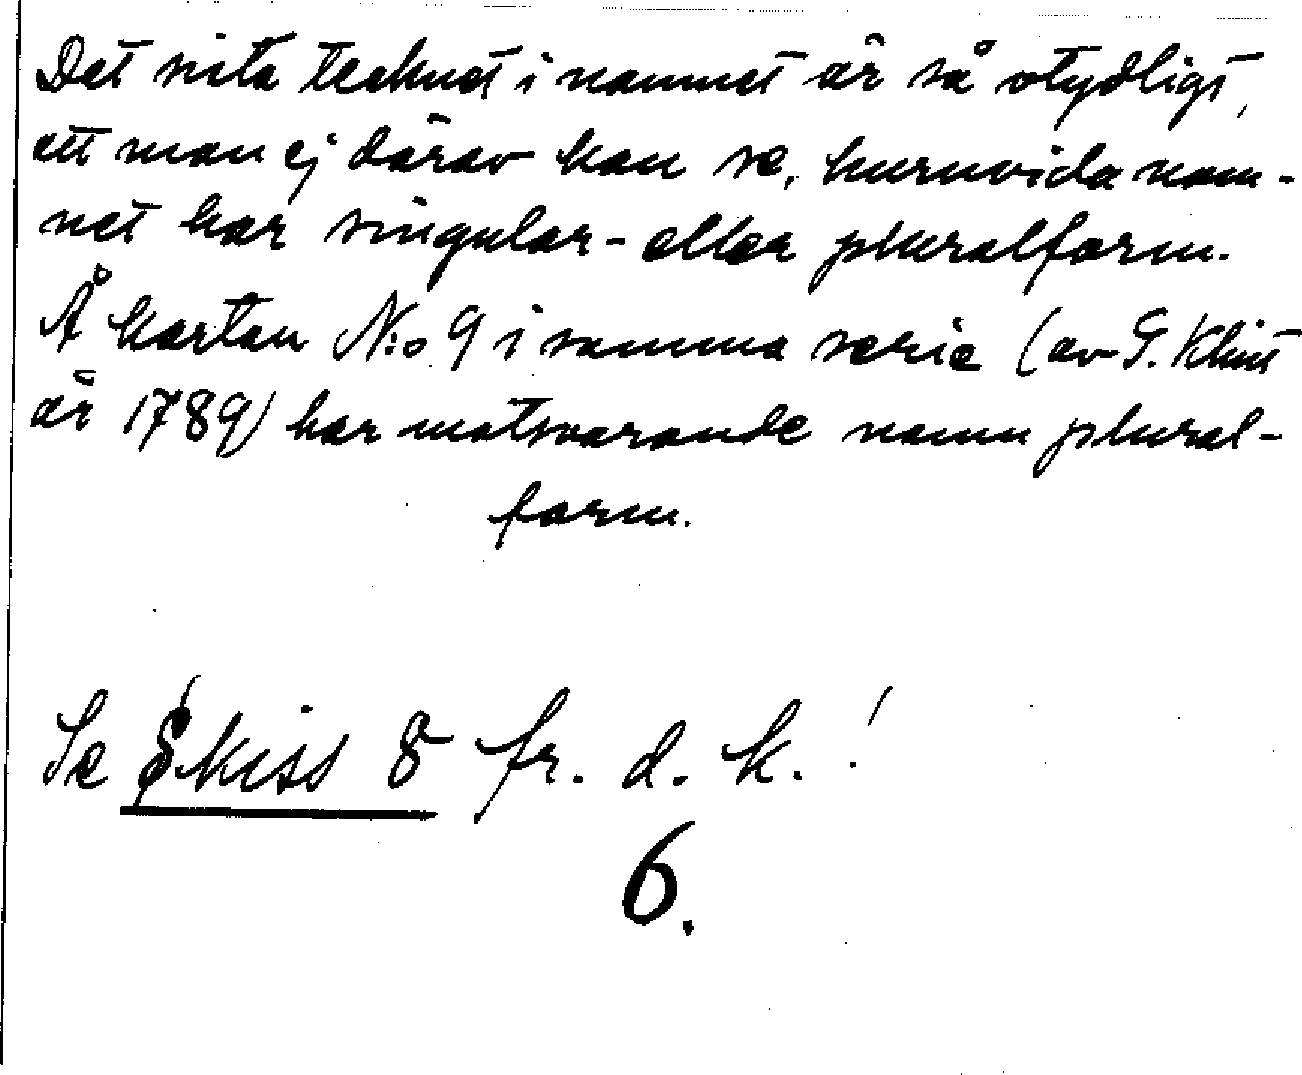 Det sista tecknet i namnet är så otydligt,
att man ej därav kan se, huruvida nam-
net har singular- eller pluralform.
Å kartan N:o 9 i samma serie (av G. Klint
år 1789) har motsvarande namn plural-
form.
Se Skiss 8 fr. d. k.!
6.